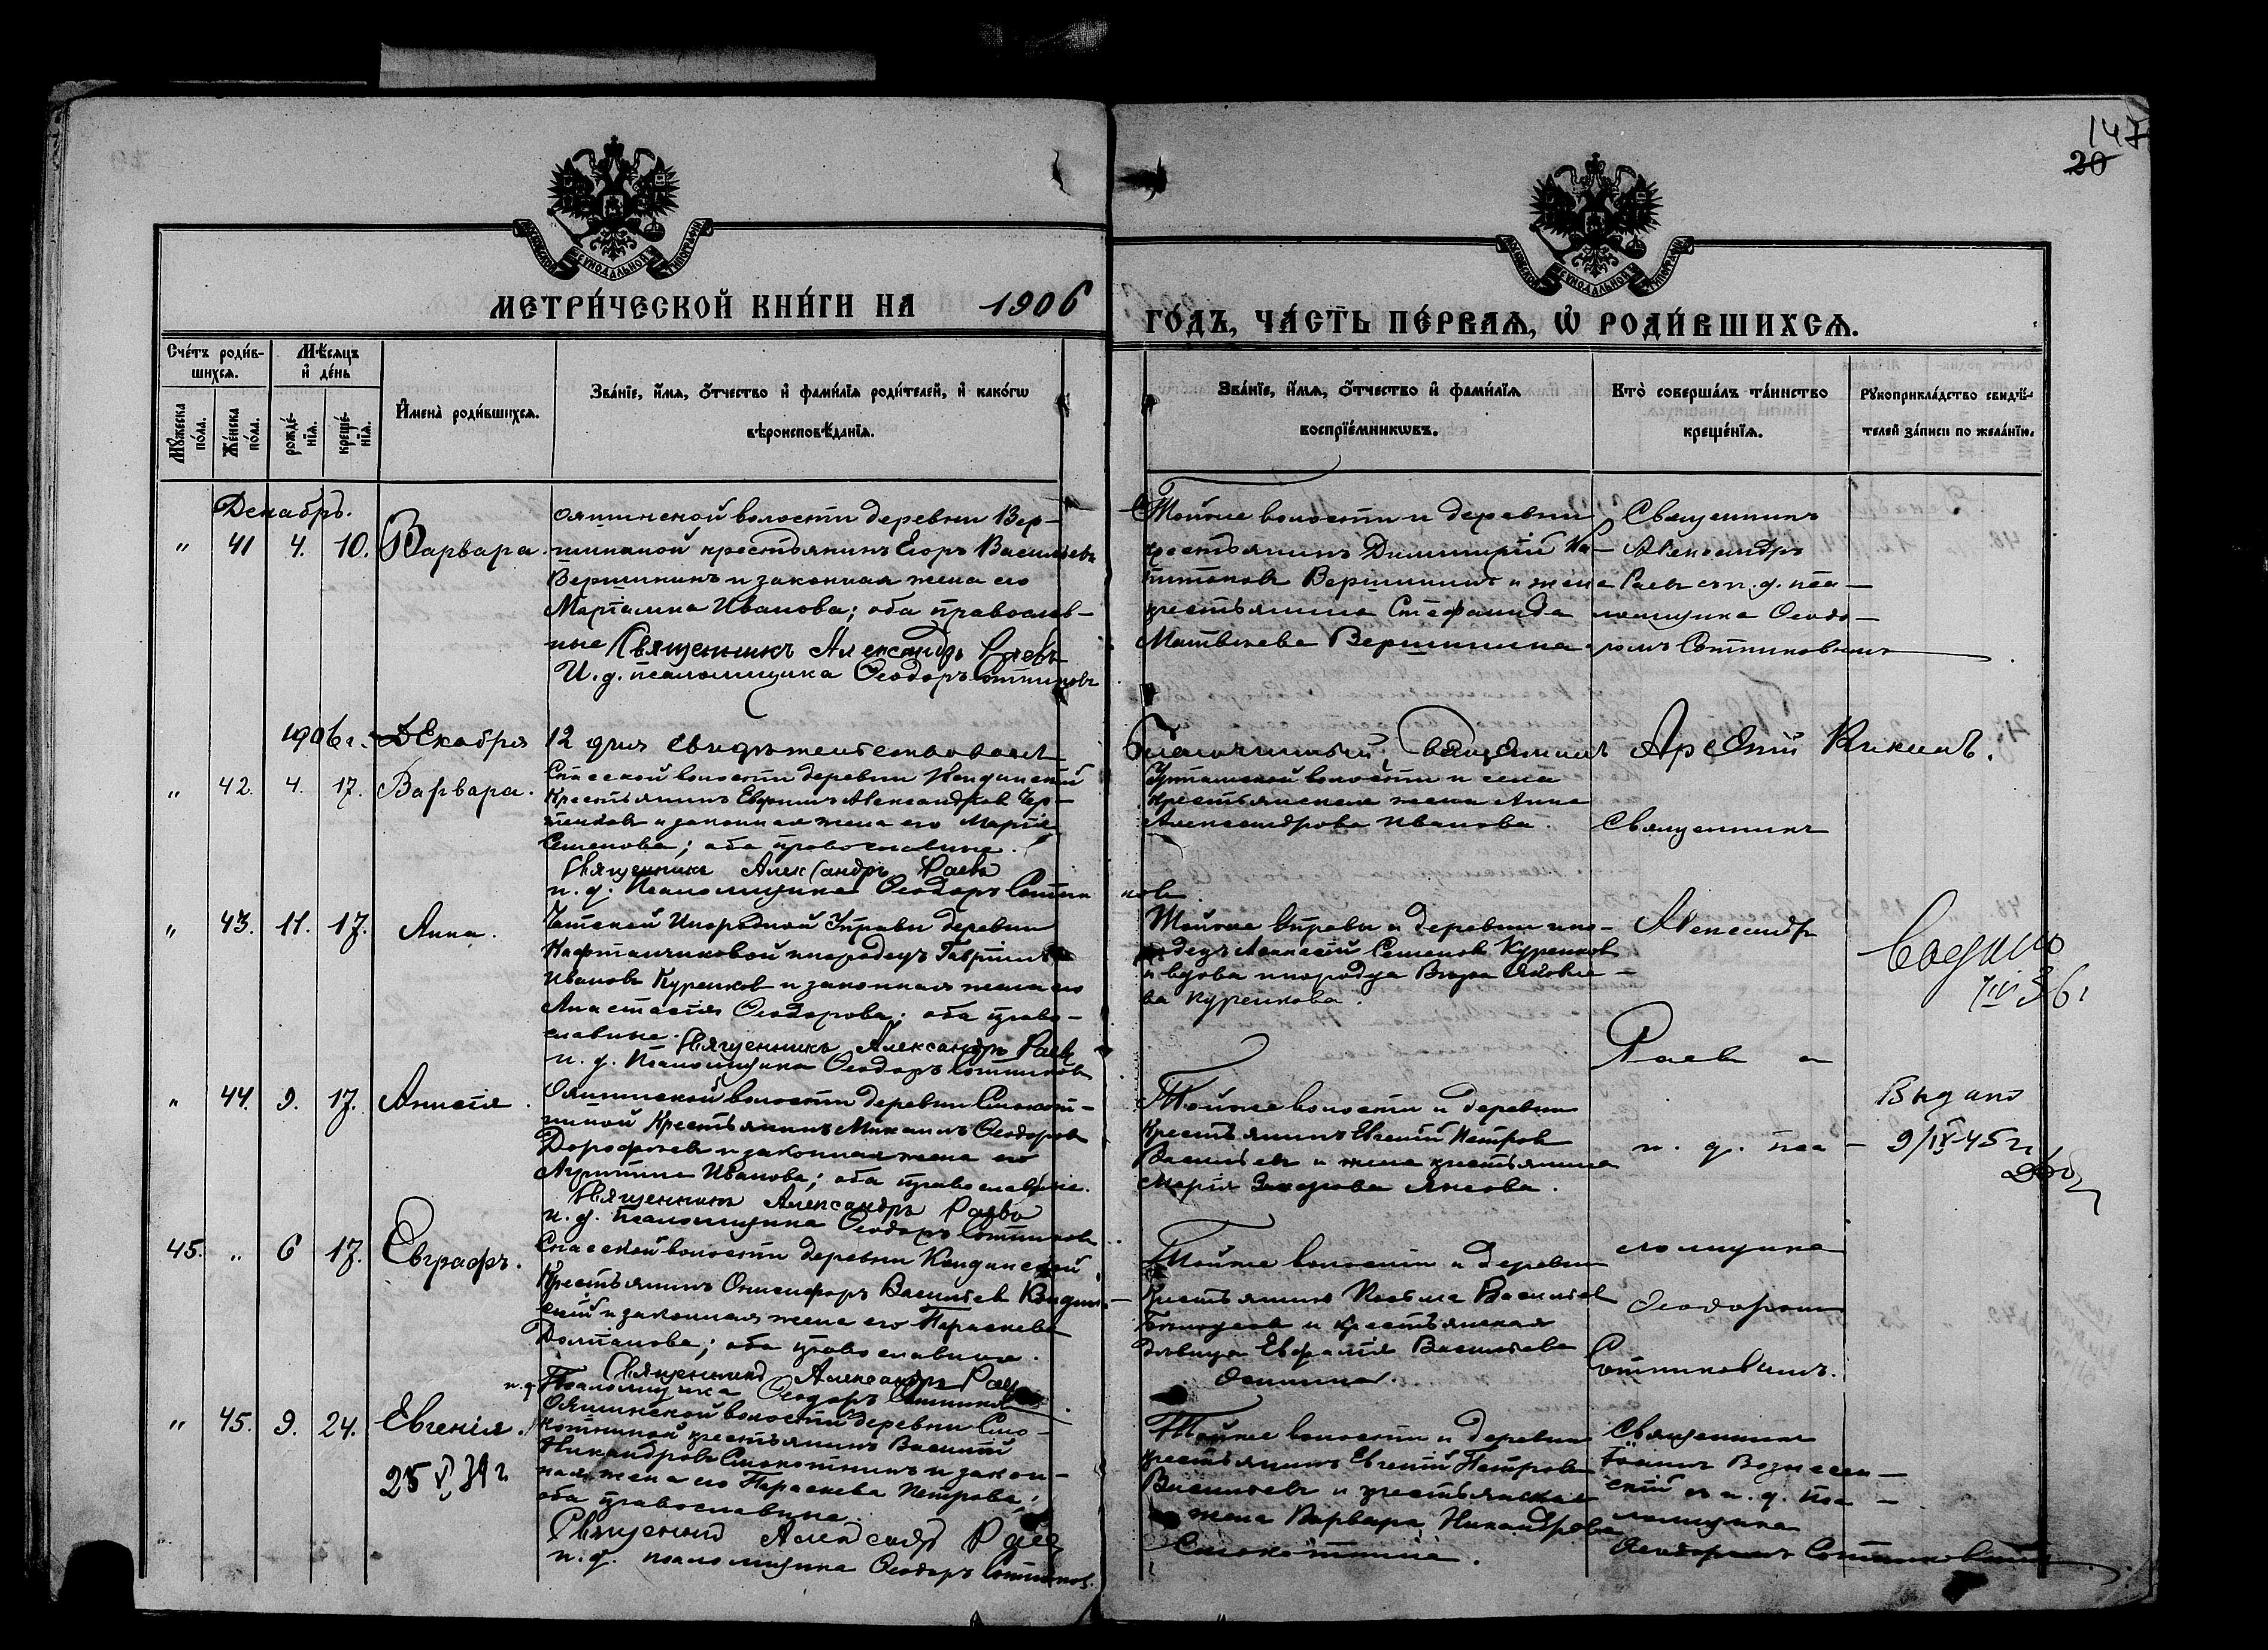 147
20
МЕТРИ́ЧЕСКОЙ КНИ́ГИ НА 1906
ГО́ДЪ, ЧА́СТЬ ПЕ́РВАѦ, Ѡ РОДИ́ВШИХСѦ.
Сче́тъ роди́вшихсѧ.
Мѣ́сѧцъ и де́нь
Мꙋ́жеска по́ла.
Же́нска по́ла.
рожде́нїѧ.
креще́нїѧ.
И҆мена̀ роди́вшихсѧ.
Зва́нїе, и҆́мѧ, ѻ҆́тчество и҆ фами́лїѧ роди́телей, и҆ како́гѡ
вѣроисповѣ́данїѧ.
Зва́нїе, и҆́мѧ, ѻ҆́тчество и҆ фами́лїѧ
воспрїе́мникѡвъ.
Кто̀ соверша́лъ та́инство
креще́нїѧ.
Рꙋкоприкла́дство свидѣ́-
телей за́писи по жела́нїю.
Декабрь.
" 41 4. 10. Варвара.
Ояшинской волости деревни Вер-
шининой крестьянинъ Егоръ Васильевъ
Вершининъ и законная жена его
Иванова; оба православ-
ные Священникъ Александръ Раевъ
И. д. псаломщика Ѳеодоръ Сотниковъ
Тойже волости и деревни
крестьянинъ Димитрій Ка-
питоновъ Вершининъ и жена
крестьянина Стефанида
Матвѣева Вершинина.
Священникъ
Александръ
Раевъ съ и. д. пса-
ломщика Ѳеодо-
ромъ Сотниковымъ
1906 г. Декабря 12 дня свидѣтельствовалъ
Благочинный, Священникъ Арсеній Кикинъ.
" 42. 4. 17. Варвара.
Спасской волости деревни
Крестьянинъ Александровъ
и законная жена его Марія
Семенова; оба православные.
Священникъ Александръ Раевъ
и. д. Псаломщика Ѳеодоръ Сотни
ковъ
волости и села
крестьянская жена Анна
Александрова Иванова.
Священникъ
" 43. 11. 17. Анна.
Чатской Инородной Управы деревни
Кафтанчиковой инородецъ Гавріилъ
Ивановъ Куренковъ и законная жена его
Анастасія Ѳеодорова; оба право-
славные. Священникъ Александръ Раевъ
и. д. Псаломщика Ѳеодоръ Сотниковъ
Тойже Управы и деревни ино-
родецъ Семеновъ Куренковъ
и вдова инородца Вѣра Яковле-
ва Куренкова.
Александръ
Раевъ и
36 г
" 44. 9. 17. Анисія.
Ояшинской волости деревни Смокот-
ниной Крестьянинъ Михаилъ Ѳеодоровъ
Дорофѣевъ и законная жена его
Иванова; оба православные.
Священникъ Александръ Раевъ
и. д. Псаломщика Ѳеодоръ Сотниковъ
Тойже волости и деревни
Крестьянинъ Евгеній Петровъ
Васильевъ и жена крестьянина
Марія Захарова
и. д. пса-
Выдано
9/IV-45 г
45. " 6 17. Евграфъ.
Спасской волости деревни Кандинской
Крестьянинъ Онисифоръ Васильевъ Кандин-
скій и законная жена его Параскева
; оба православные.
Священникъ Александръ Раевъ
и. д. Псаломщика Ѳеодоръ Сотниковъ
Тойже волости и деревни
Крестьянинъ Васильевъ
и крестьянская
дѣвица Васильева
ломщика
Ѳеодоромъ
Сотниковымъ.
" 45. 9. 24. Евгенія.
25 VI 39 г.
Ояшинской волости деревни Смо-
котниной крестьянинъ Василій
Никандровъ Смокотнинъ и закон-
ная жена его Параскева Петрова;
оба православные.
Священникъ Александръ Раевъ
и. д. псаломщика Ѳеодоръ Сотниковъ.
Тойже волости и деревни
крестьянинъ Евгеній Петровъ
Васильевъ и крестьянская
жена Варвара Никандрова
Смокотнина.
Священникъ
Іоаннъ Вознесен-
скій съ и. д. пса-
ломщика
Ѳеодоромъ Сотниковымъ